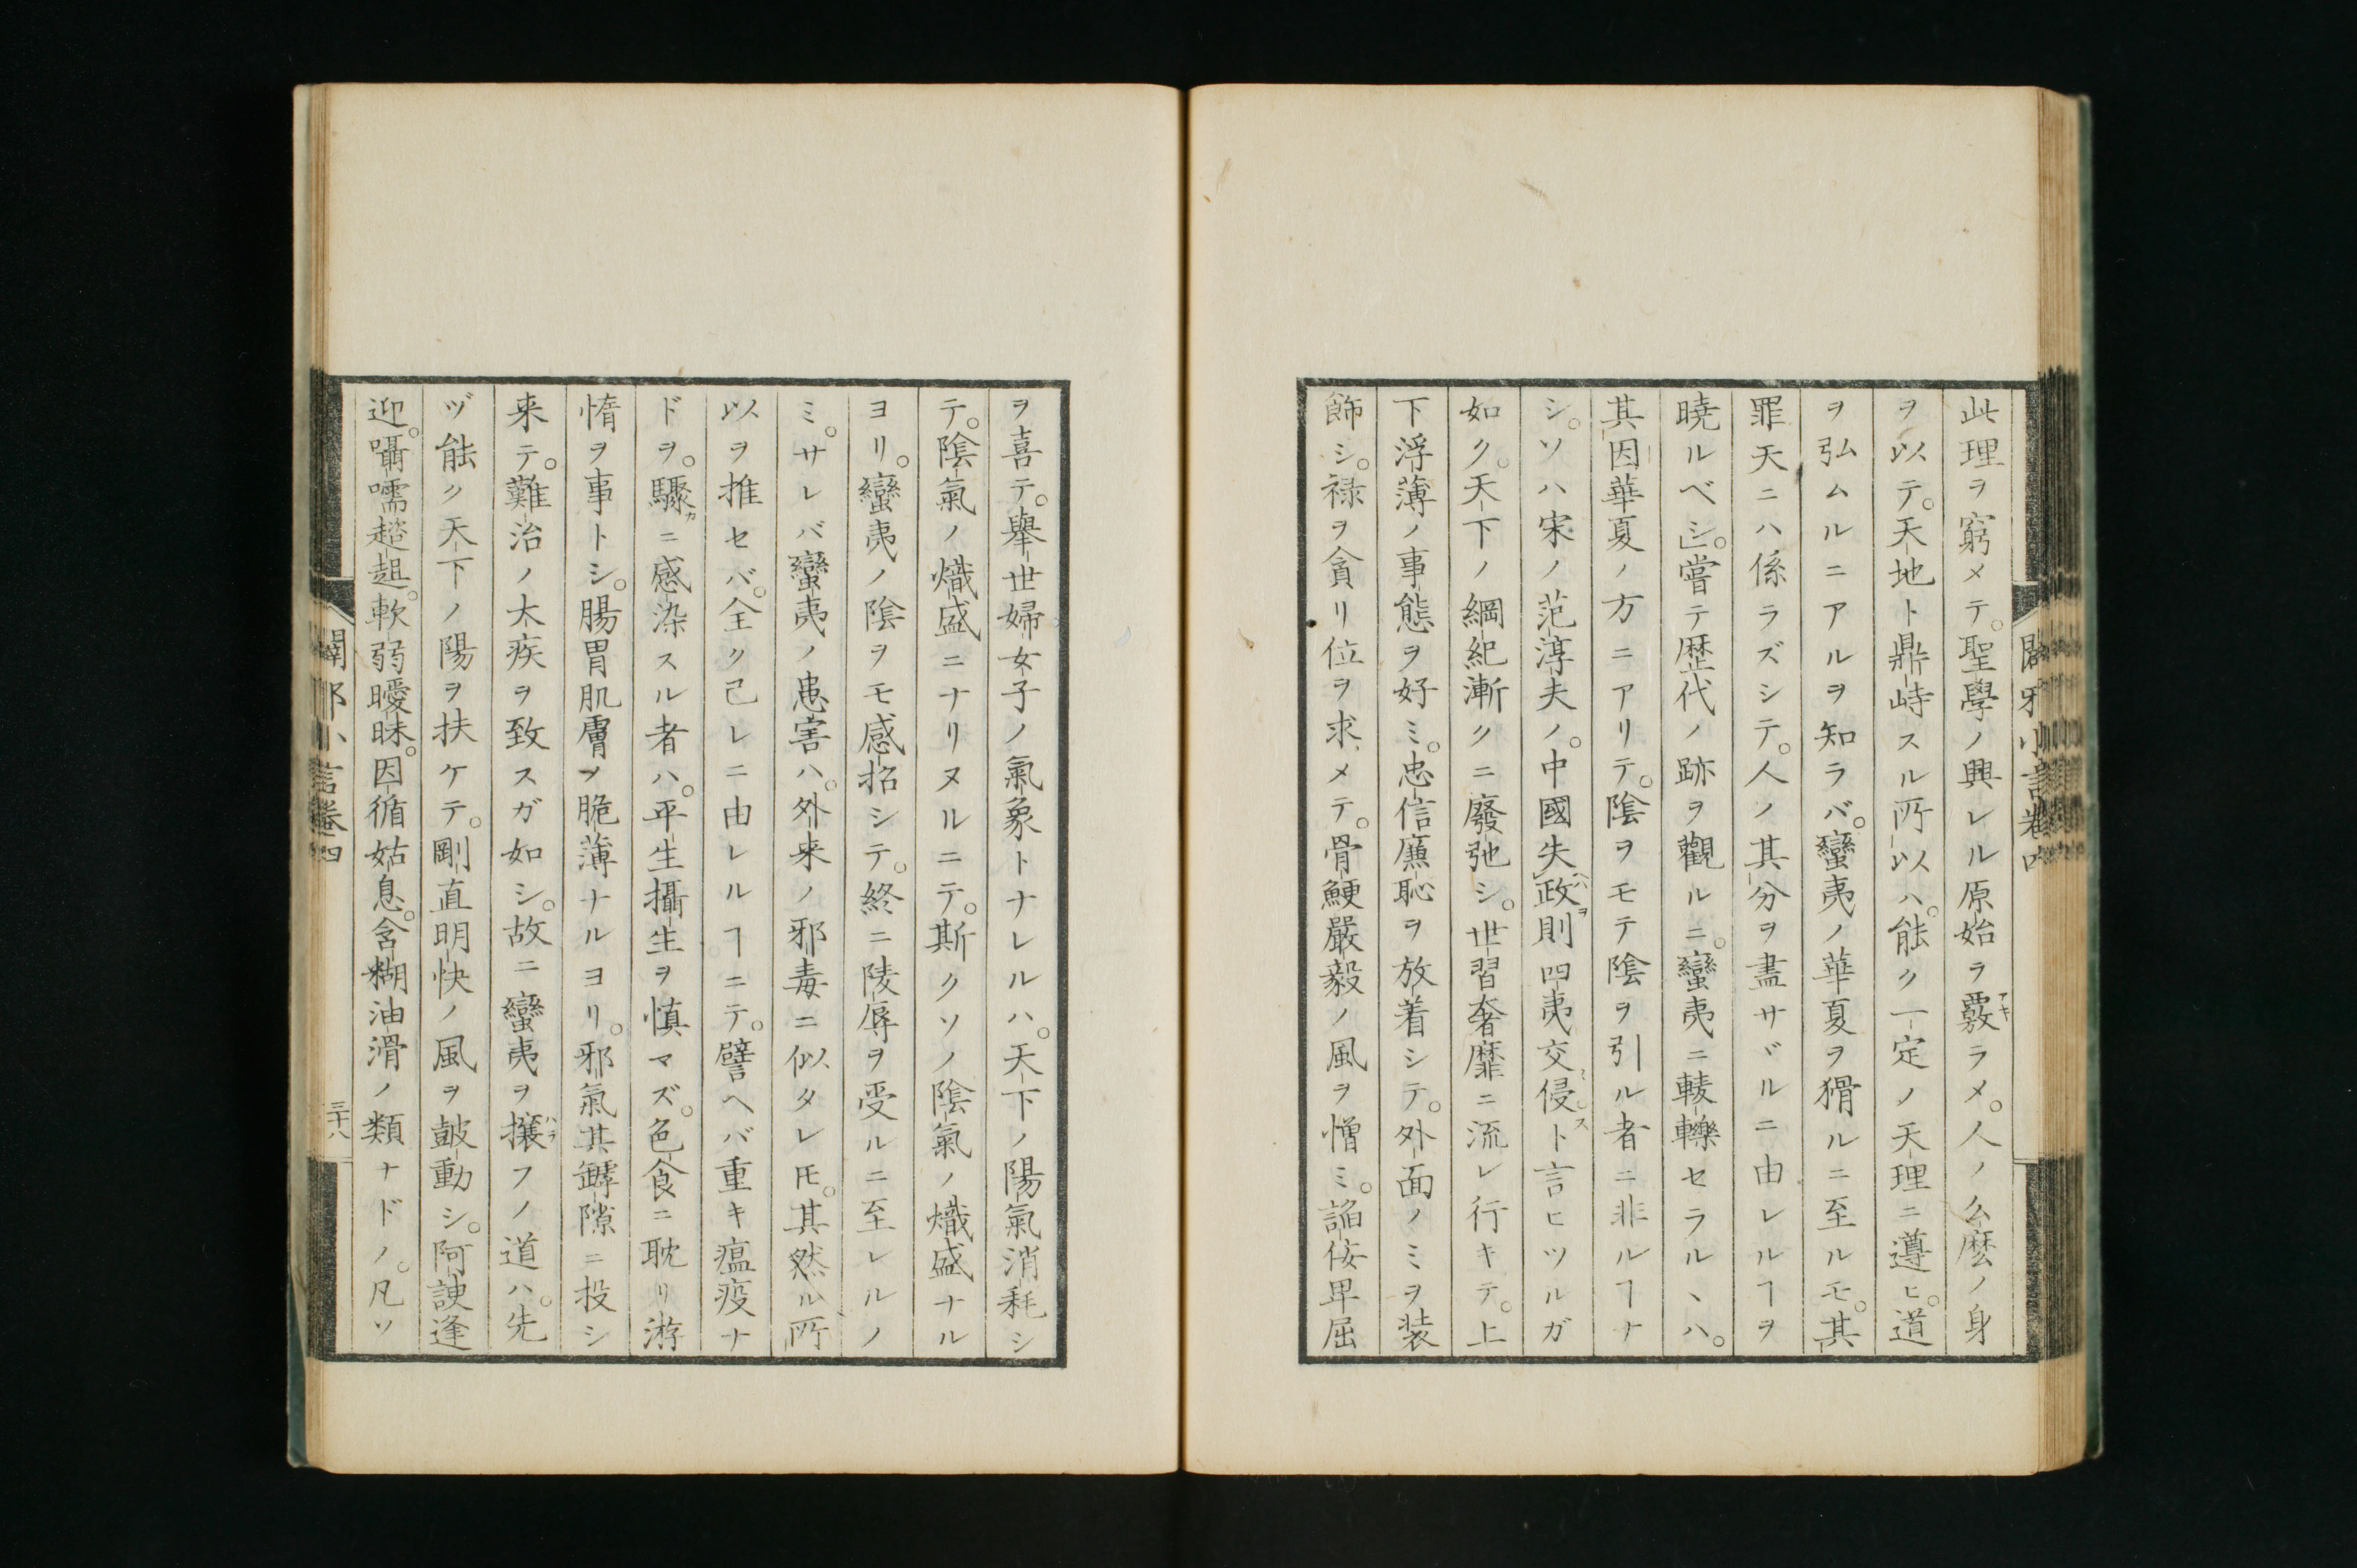 此理ヲ窮メテ。聖學ノ興レル原始ヲ覈ラメ。人ノ幺麼ノ身
ヲ以テ。天地ト鼎峙スル所以ハ。能ク一定ノ天理ニ遵ヒ。道
ヲ弘ムルニアルヲ知ラバ。蠻夷ノ華夏ヲ猾ルニ至ルモ。其
罪天ニハ係ラズシテ。人ノ其分ヲ盡サヾルニ由レルヿヲ
曉ルベシ」。嘗テ歴代ノ跡ヲ觀ルニ。蠻夷ニ輘轢セラルヽハ。
其因華夏ノ方ニアリテ。陰ヲモテ陰ヲ引ル者ニ非ルヿナ
シ。ソハ宋ノ范淳夫ノ。中國失政則四夷交侵ト言ヒツルガ
如ク。天下ノ綱紀漸クニ廢弛シ。世習奢靡ニ流レ行キテ。上
下浮薄ノ事態ヲ好ミ。忠信廉恥ヲ放着シテ。外面ノミヲ装
飾シ。禄ヲ貪リ位ヲ求メテ。骨鯁嚴毅ノ風ヲ憎ミ。諂侫卑屈
ヲ喜テ。舉世婦女子ノ氣象トナレルハ。天下ノ陽氣消耗シ
テ。陰氣ノ熾盛ニナリヌルニテ。斯クソノ陰氣ノ熾盛ナル
ヨリ。蠻夷ノ陰ヲモ感招シテ。終ニ陵辱ヲ受ルニ至レルノ
ミ。サレバ蠻夷ノ患害ハ。外来ノ邪毒ニ似タレ𪜈。其然ル所
以ヲ推セバ。全ク己レニ由レルヿニテ。譬ヘバ重キ瘟疫ナ
ドヲ。驟ニ感染スル者ハ。平生攝生ヲ慎マズ。色食ニ耽リ游
惰ヲ事トシ。腸胃肌膚ノ脆薄ナルヨリ。邪氣其罅隙ニ投シ
来テ。難治ノ大疾ヲ致スガ如シ。故ニ蠻夷ヲ攘フノ道ハ。先
ヅ能ク天下ノ陽ヲ扶ケテ。剛直明快ノ風ヲ鼓動シ。阿諛逢
迎。囁嚅趦趄。軟弱曖昧。因循姑息。含糊油滑ノ類ナドノ。凡ソ
闢邪小言卷四
三十八